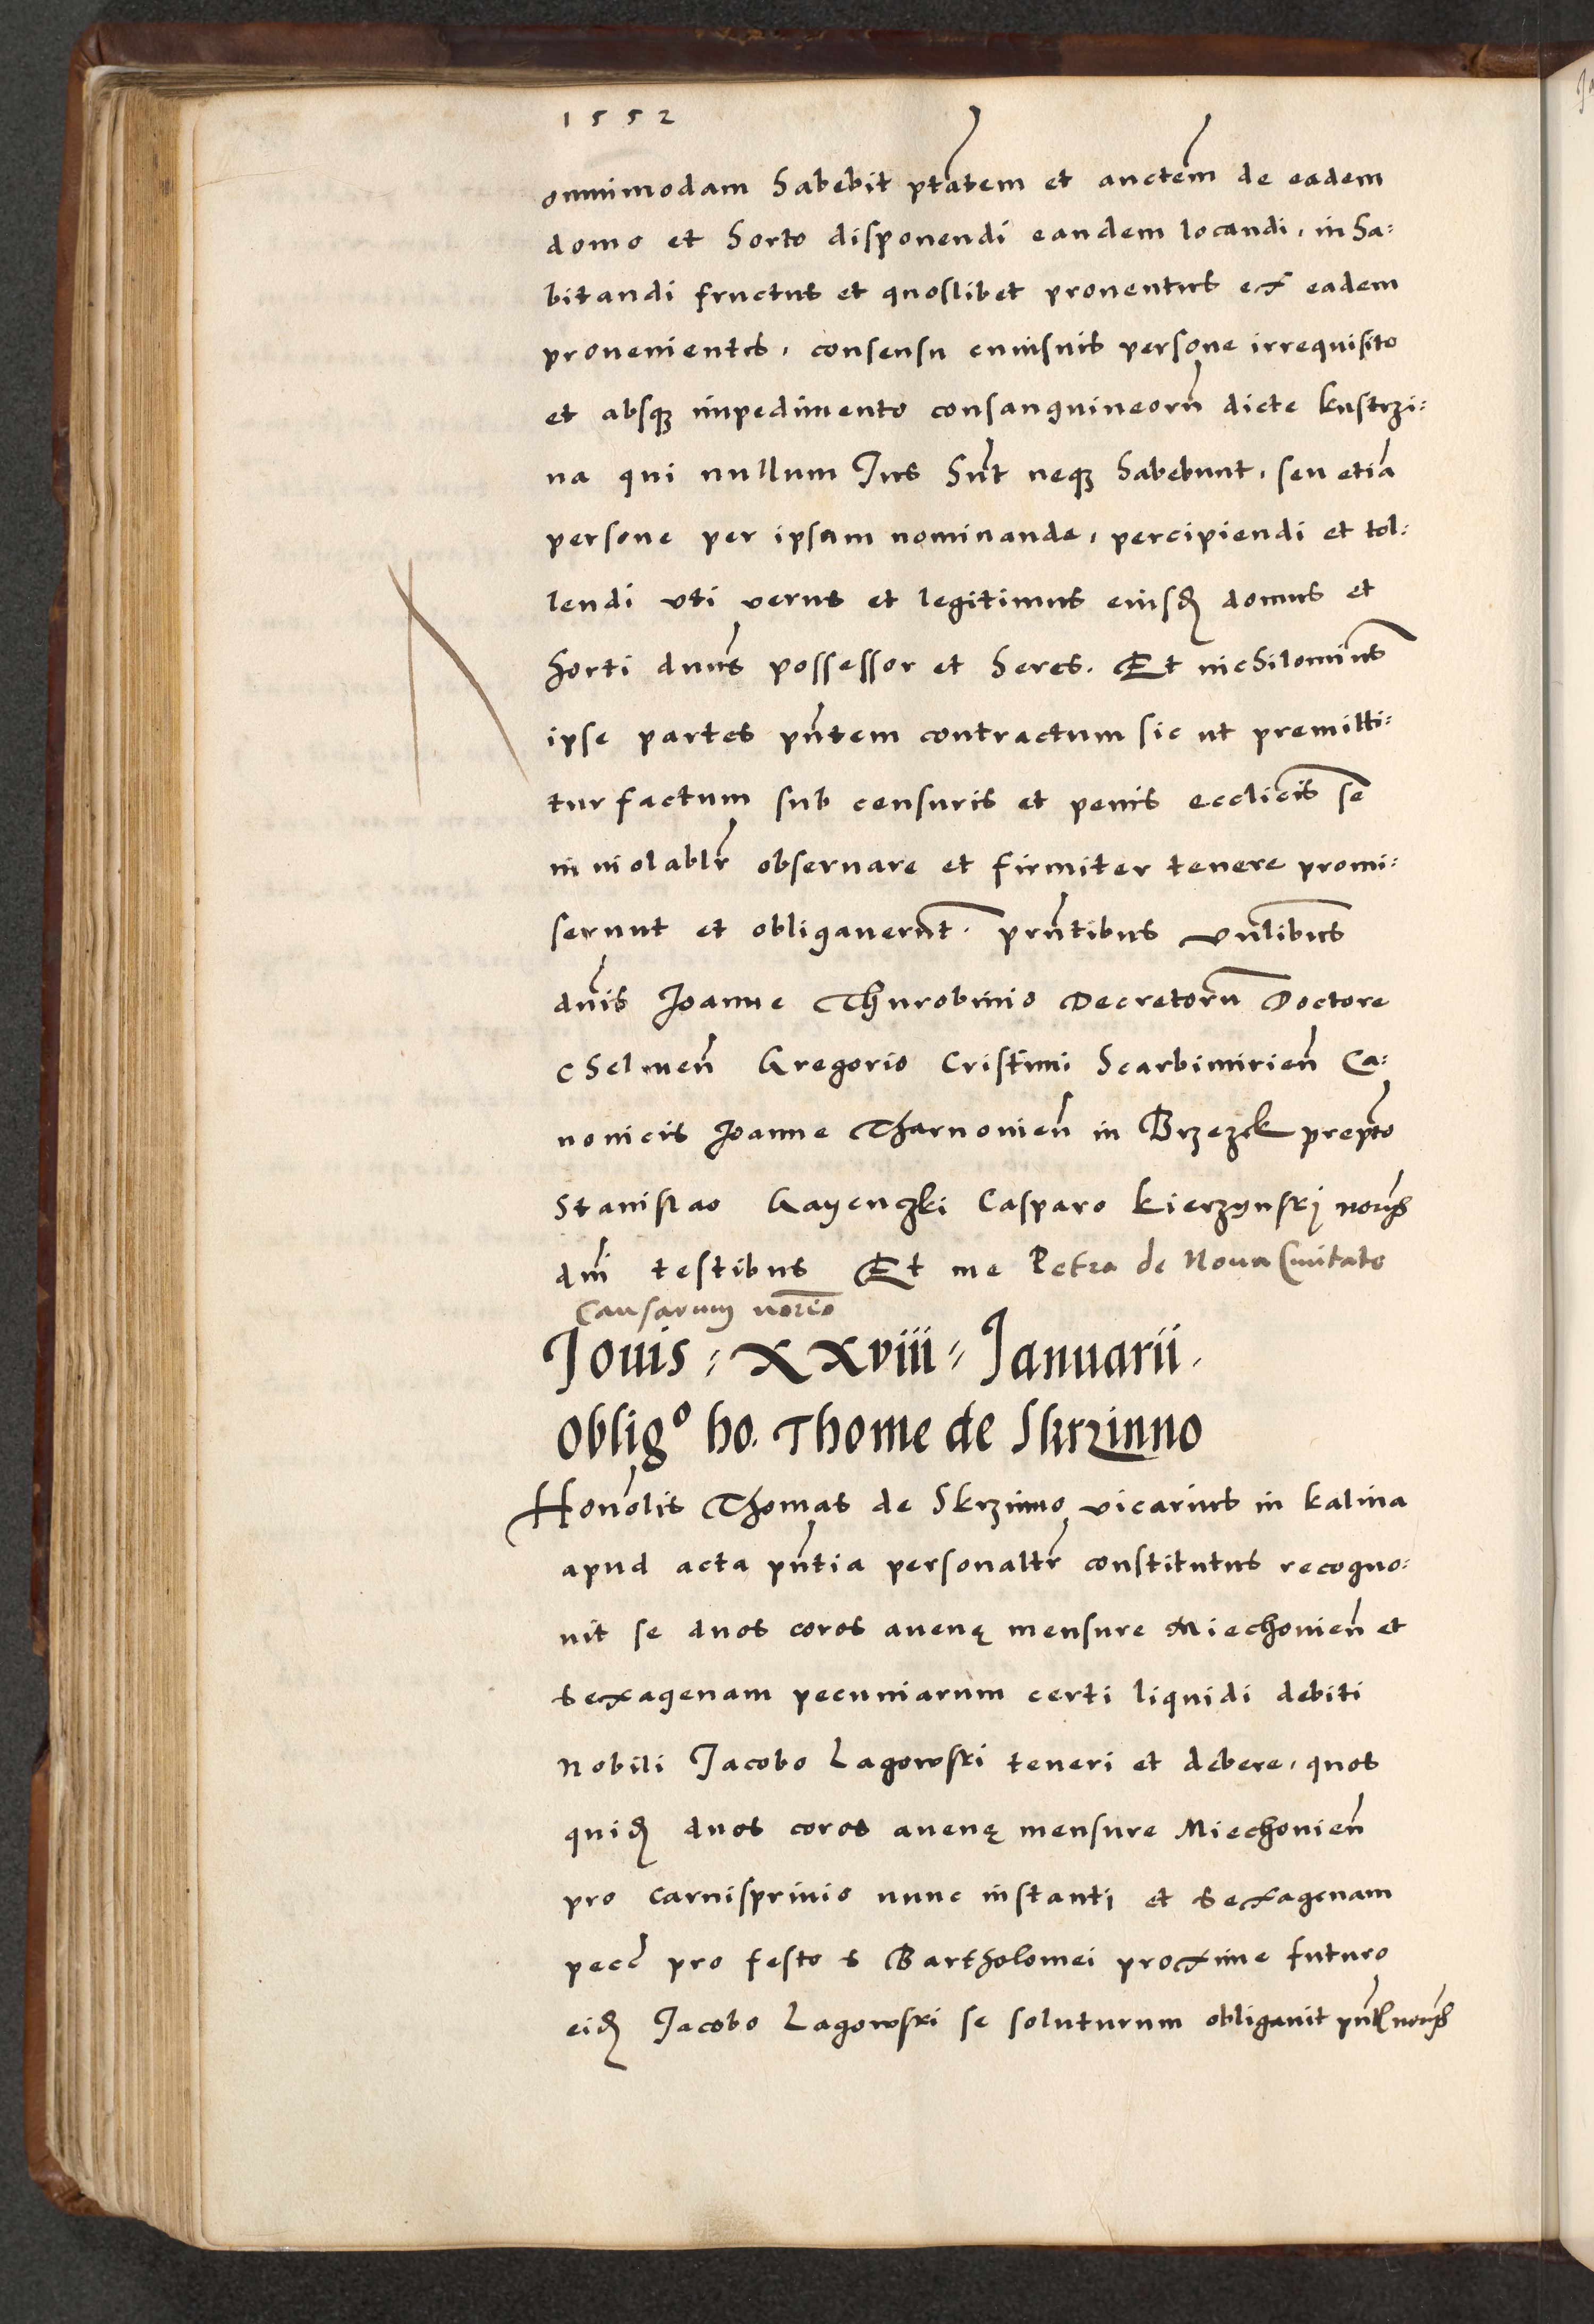 1552
omnimodam habebit ptātem et auctem̄ de eadem
domo et horto disponendi eandem locandi, inha:
bitandi fructus et quoslibet prouentus ex eadem
prouenientes, consensu cuiusuis persone irrequisito
et absq₃ impedimento consanguineorū dicte kustrzi:
na qui nullum Jus hn̄t neq₃ habebunt, seu etiā
persone per ipsam nominande, percipiendi et tol:
lendi vti verus et legitimus eiusd̄ domus et
horti dnūs possessor et heres. Et nichilomin̄s
ipse partes pn̄tem contractum sic ut premitti:
tur factum sub censuris et penis eccl̄icis se
inuiolablr̄ obseruare et firmiter tenere promi:
serunt et obligauerūt. prn̄tibus vn̄libus
dnīs Joanne Thurobinio Decretorū Doctore
chelmeñ Gregorio Cristini Scarbimirieñ Ca:
nonicis Joanne Tharnouieñ in Brzezek prepto
Stanislao Gayenczki Casparo Kierzynskj nor̄ys
dnī testibus Et me Petro de Noua Ciuitate
Causarum nor̄io
Jouis = XXviii = Januarii.
Oblig° ho. Thome de Skrzinno
Honōlis Thomas de Skrzinno vicarius in kalina
apud acta pn̄tia personaltr̄ constitutus recogno:
uit se duos coros auenę mensure Miechouieñ et
sexagenam pecuniarum certi liquidi debiti
Nobili Jacobo Lagowski teneri et debere, quos
quid̄ duos coros auenę mensure Miechouieñ
pro carnispriuio nunc instanti et sexagenam
pecc̄ pro festo s Bartholomei proxime futuro
eid̄ Jacobo Lagowski se soluturum obligauit pn̄tibus nor̄ys